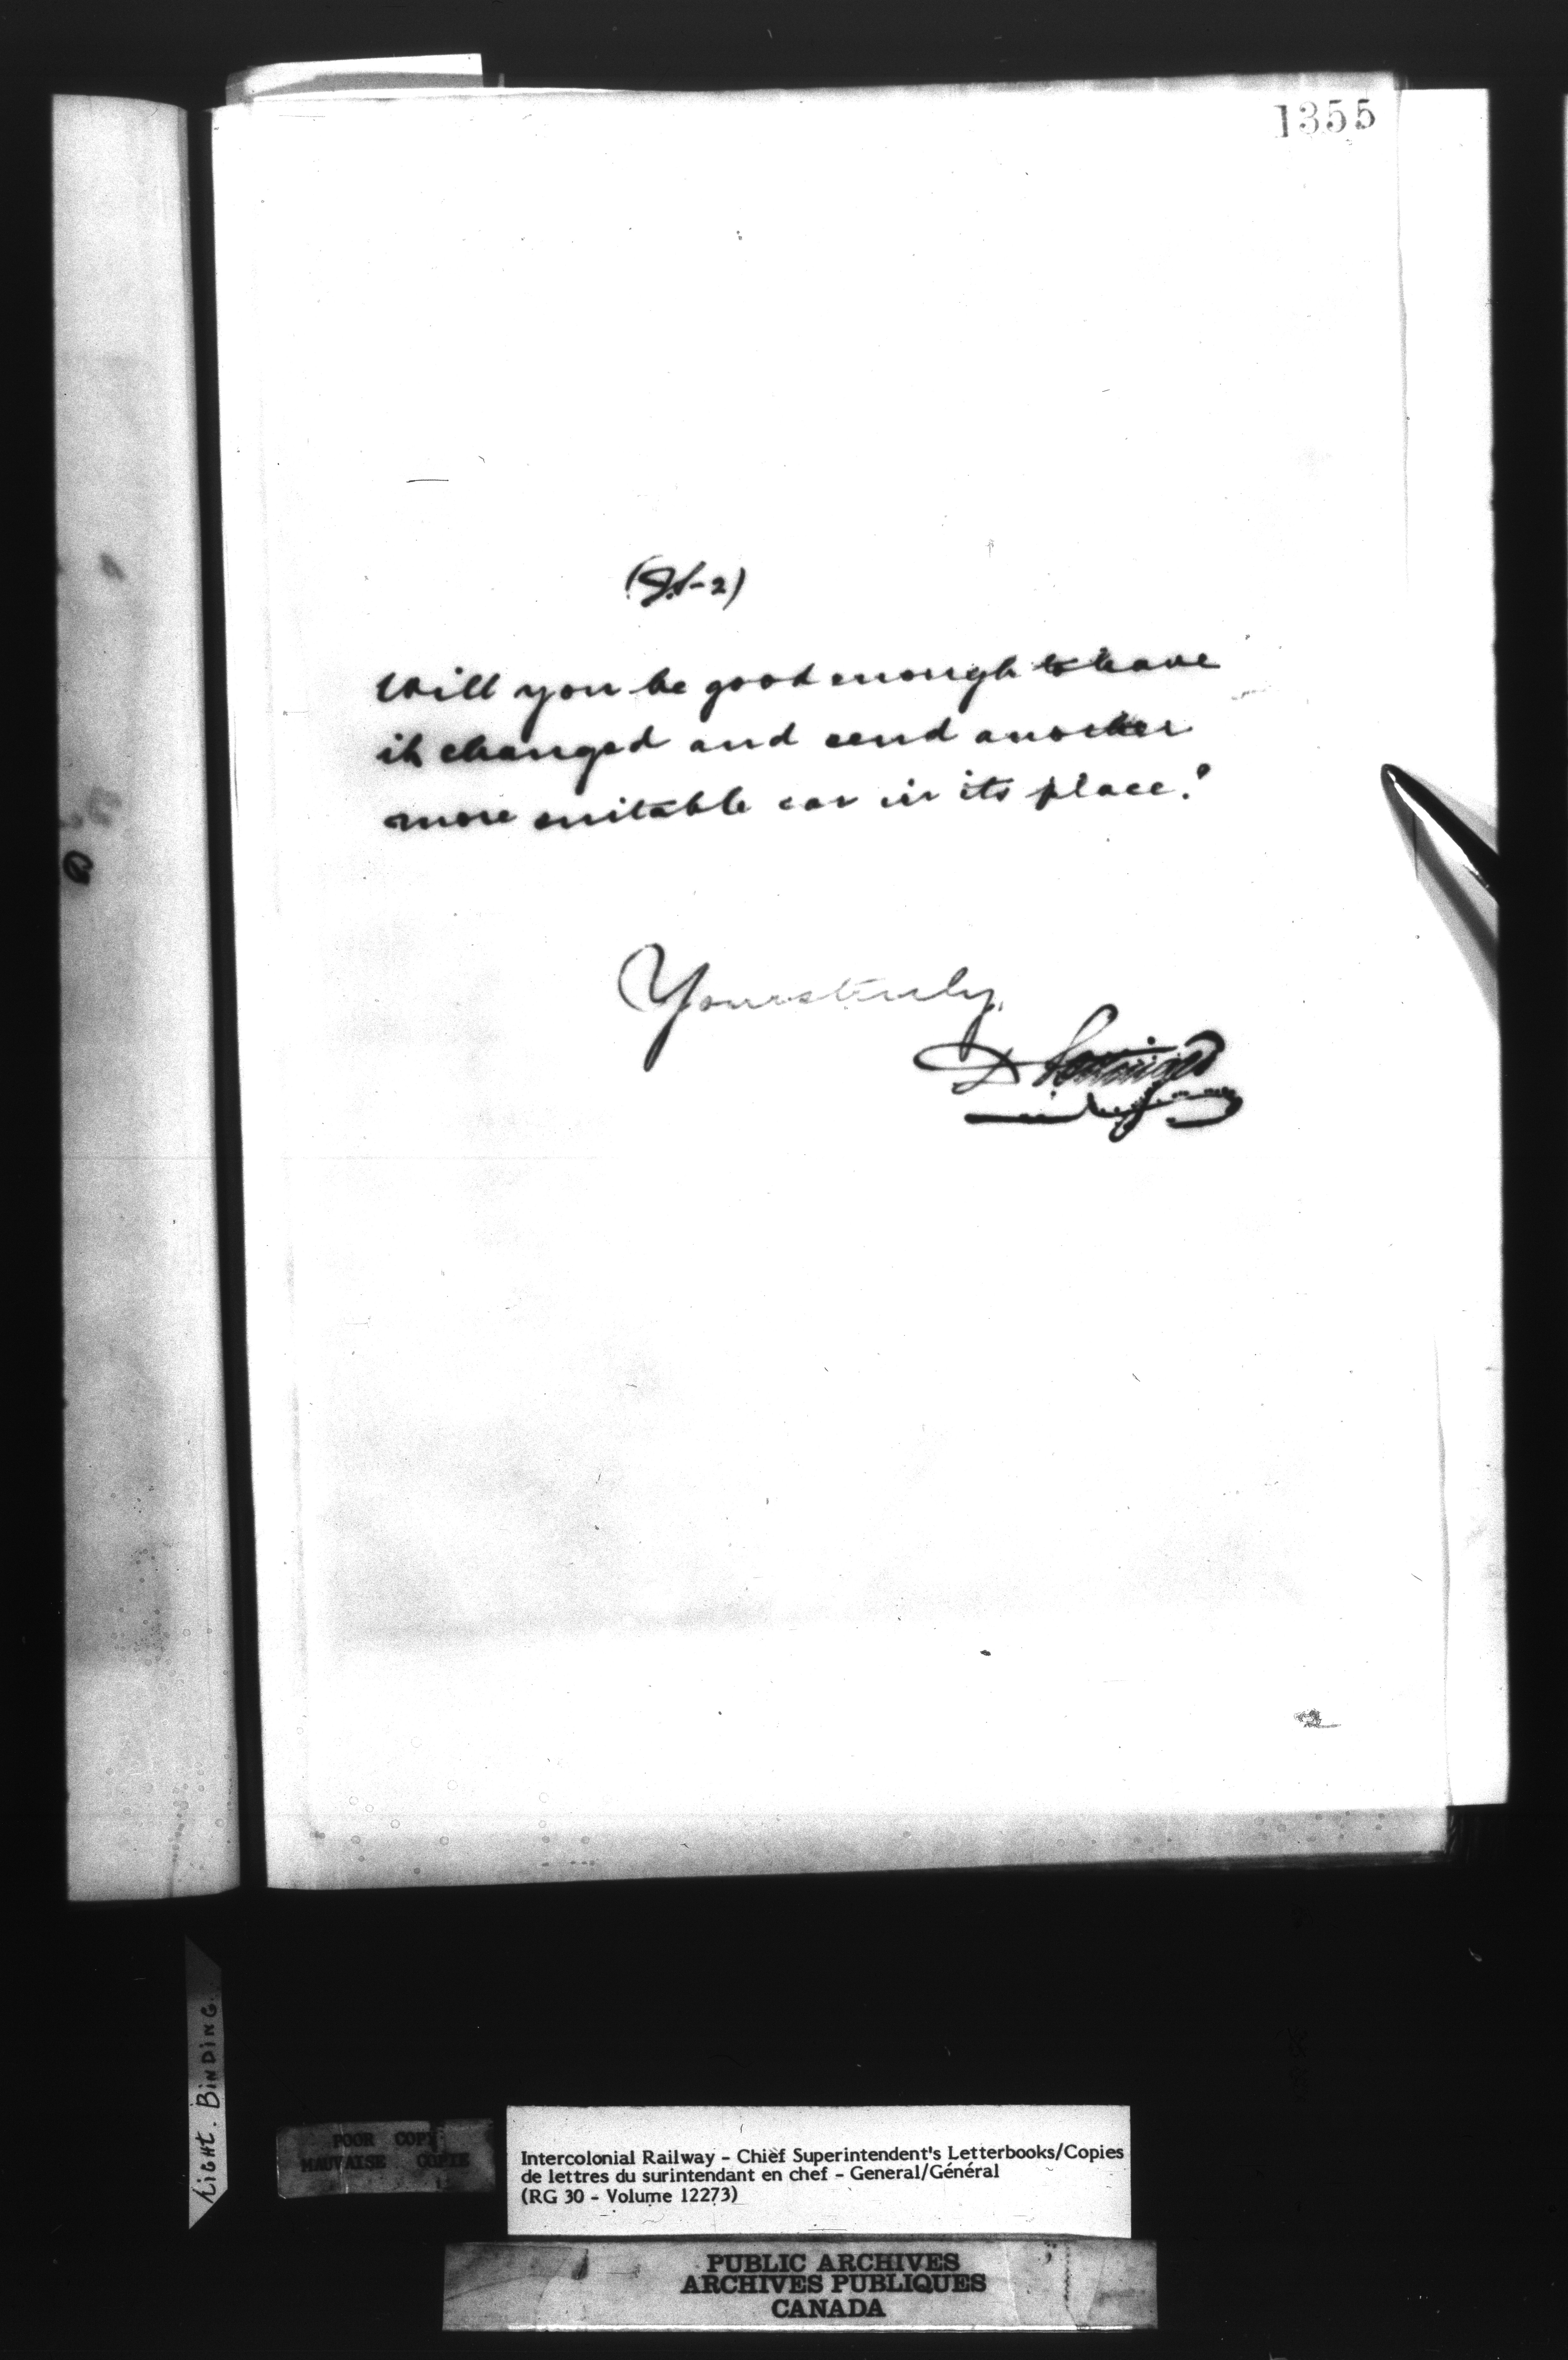 1355
Will you be good enough to have
it changed and send another
more suitable car in its place?
Yours truly,
D Pottinger
LIGHT. BINDING.
POOR COPY
MAUVAISE COPIE
Intercolonial Railway - Chief Superintendent's Letterbooks/Copies
de lettres du surintendant en chef - General/Général
(RG 30 - Volume 12273)
PUBLIC ARCHIVES
ARCHIVES PUBLIQUES
CANADA